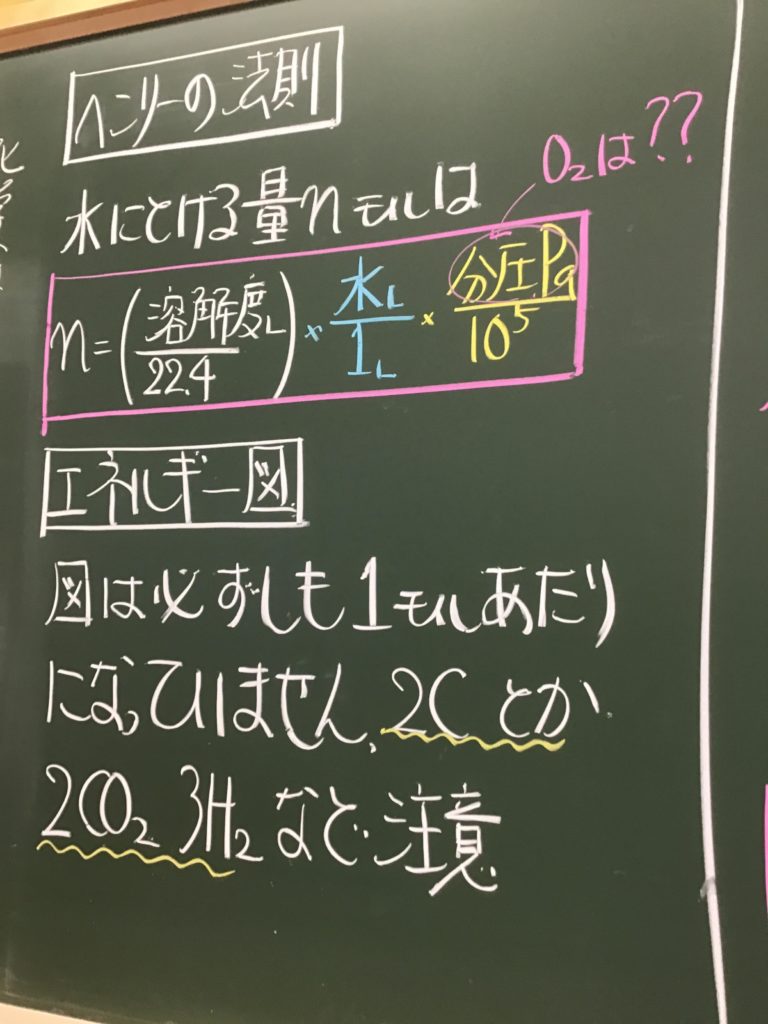 ヘンリーの法則
O₂は??
水にとける量nモルは
n=(溶解度L/22.4)×水L/1L×分圧Pa/10⁵
エネルギー図
図は必ずしも1モルあたり
になっていません、2Cとか
2CO₂ 3H₂など注意